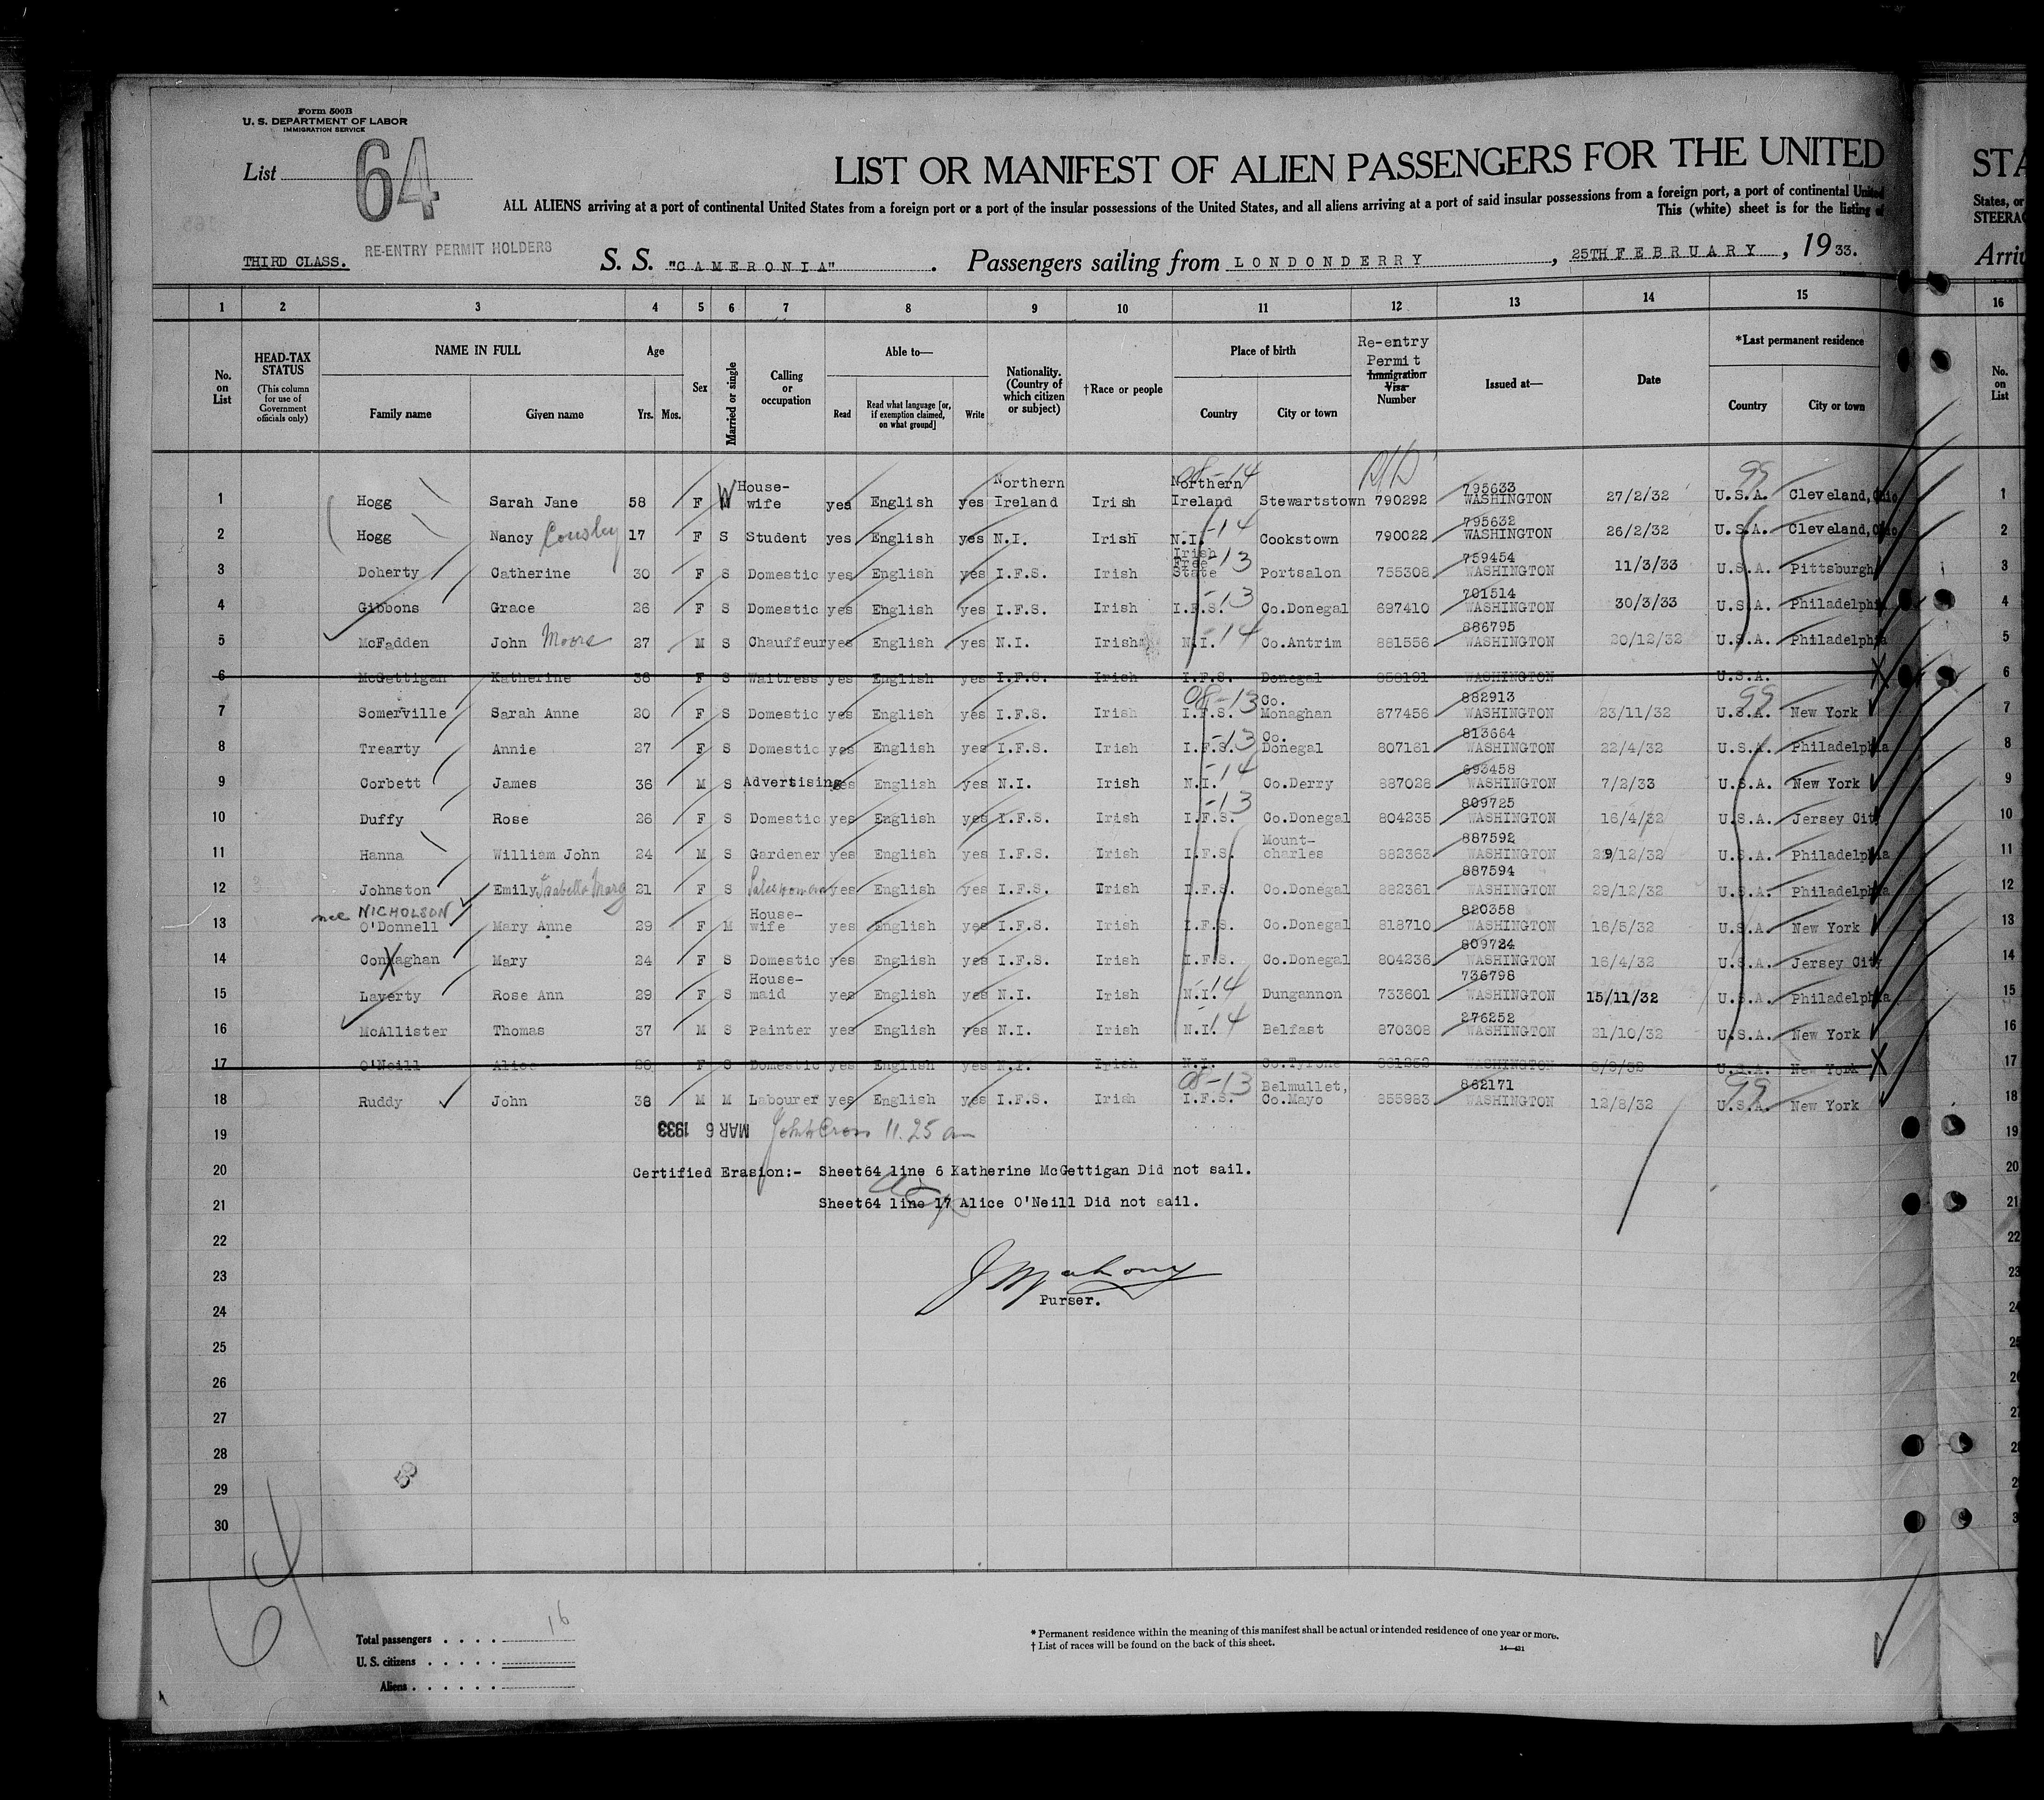 Form 500B
U. S. DEPARTMENT OF LABOR
IMMIGRATION SERVICE
List 64
LIST OR MANIFEST OF ALIEN PASSENGERS FOR THE UNITED
STA
ALL ALIENS arriving at a port of continental United States from a foreign port or a port of the insular possessions of the United States, and all aliens arriving at a port of said insular possessions from a foreign port, a port of continental United
States, or
This (white) sheet is for the listing of
STEERAG
THIRD CLASS. RE-ENTRY PERMIT HOLDERS S. S. "CAMERONIA" . Passengers sailing from LONDONDERRY , 25TH FEBRUARY , 1933.
Arriv
1 2 3 4 5 6 7 8 9 10 11 12 13 14 15 16
No. on List
HEAD-TAX STATUS (This column for use of Government officials only)
NAME IN FULL Family name Given name
Age Yrs. Mos.
Sex
Married or single
Calling or occupation
Able to— Read Read what language [or, if exemption claimed, on what ground] Write
Nationality. (Country of which citizen or subject)
†Race or people
Place of birth Country City or town
Re-entry Permit Immigration Visa Number
Issued at—
Date
*Last permanent residence Country City or town
No. on List
1 Hogg Sarah Jane 58 F W House-wife yes English yes Northern Ireland Irish 08-14 Northern Ireland Stewartstown 790292 795633 WASHINGTON 27/2/32 99 U.S.A. Cleveland, Ohio 1
2 Hogg Nancy Cousley 17 F S Student yes English yes N.I. Irish N.I. -14 Cookstown 790022 795632 WASHINGTON 26/2/32 U.S.A. Cleveland, Ohio 2
3 Doherty Catherine 30 F S Domestic yes English yes I.F.S. Irish Irish Free State -13 Portsalon 755308 759454 WASHINGTON 11/3/33 U.S.A. Pittsburgh 3
4 Gibbons Grace 26 F S Domestic yes English yes I.F.S. Irish I.F.S. -13 Co.Donegal 697410 701514 WASHINGTON 30/3/33 U.S.A. Philadelphia 4
5 McFadden John Moore 27 M S Chauffeur yes English yes N.I. Irish N.I. -14 Co.Antrim 881556 886795 WASHINGTON 20/12/32 U.S.A. Philadelphia 5
6 McGettigan Katherine 36 F S Waitress yes English yes I.F.S. Irish I.F.S. Donegal WASHINGTON U.S.A. X 6
7 Somerville Sarah Anne 20 F S Domestic yes English yes I.F.S. Irish 08-13 I.F.S. Co. Monaghan 877456 882913 WASHINGTON 23/11/32 99 U.S.A. New York 7
8 Trearty Annie 27 F S Domestic yes English yes I.F.S. Irish I.F.S. -13 Co. Donegal 807161 813664 WASHINGTON 22/4/32 U.S.A. Philadelphia 8
9 Corbett James 36 M S Advertising yes English yes N.I. Irish N.I. -14 Co.Derry 887028 693458 WASHINGTON 7/2/33 U.S.A. New York 9
10 Duffy Rose 26 F S Domestic yes English yes I.F.S. Irish I.F.S. -13 Co.Donegal 804235 809725 WASHINGTON 16/4/32 U.S.A. Jersey City 10
11 Hanna William John 24 M S Gardener yes English yes I.F.S. Irish I.F.S. Mount-charles 882363 887592 WASHINGTON 29/12/32 U.S.A. Philadelphia 11
12 Johnston Emily Isabella Marg 21 F S Saleswoman yes English yes I.F.S. Irish I.F.S. Co.Donegal 882361 887594 WASHINGTON 29/12/32 U.S.A. Philadelphia 12
13 nee NICHOLSON O'Donnell Mary Anne 29 F M House-wife yes English yes I.F.S. Irish I.F.S. Co.Donegal 818710 820358 WASHINGTON 16/5/32 U.S.A. New York 13
14 Connaghan Mary 24 F S Domestic yes English yes I.F.S. Irish I.F.S. Co.Donegal 804236 809724 WASHINGTON 16/4/32 U.S.A. Jersey City 14
15 Laverty Rose Ann 29 F S House-maid yes English yes N.I. Irish N.I. -14 Dungannon 733601 736798 WASHINGTON 15/11/32 U.S.A. Philadelphia 15
16 McAllister Thomas 37 M S Painter yes English yes N.I. Irish N.I. -14 Belfast 870308 276252 WASHINGTON 21/10/32 U.S.A. New York 16
17 O'Neill Alice F S Domestic yes English yes N.I. Irish N.I. Co.Tyrone WASHINGTON U.S.A. New York X 17
18 Ruddy John 38 M M Labourer yes English yes I.F.S. Irish 08-13 I.F.S. Belmullet, Co.Mayo 855983 862171 WASHINGTON 12/8/32 99 U.S.A. New York 18
19 MAR 6 1933 11.25 am 19
20 Certified Erasion:- Sheet64 line 6 Katherine McGettigan Did not sail. 20
21 Sheet64 line 17 Alice O'Neill Did not sail. 21
22 22
23 J Mahony 23
24 Purser. 24
25 25
26 26
27 27
28 28
29 29
30 3
64
Total passengers . . . . 16
U. S. citizens . . . . .
Aliens . . . . . .
* Permanent residence within the meaning of this manifest shall be actual or intended residence of one year or more.
† List of races will be found on the back of this sheet.
14—421